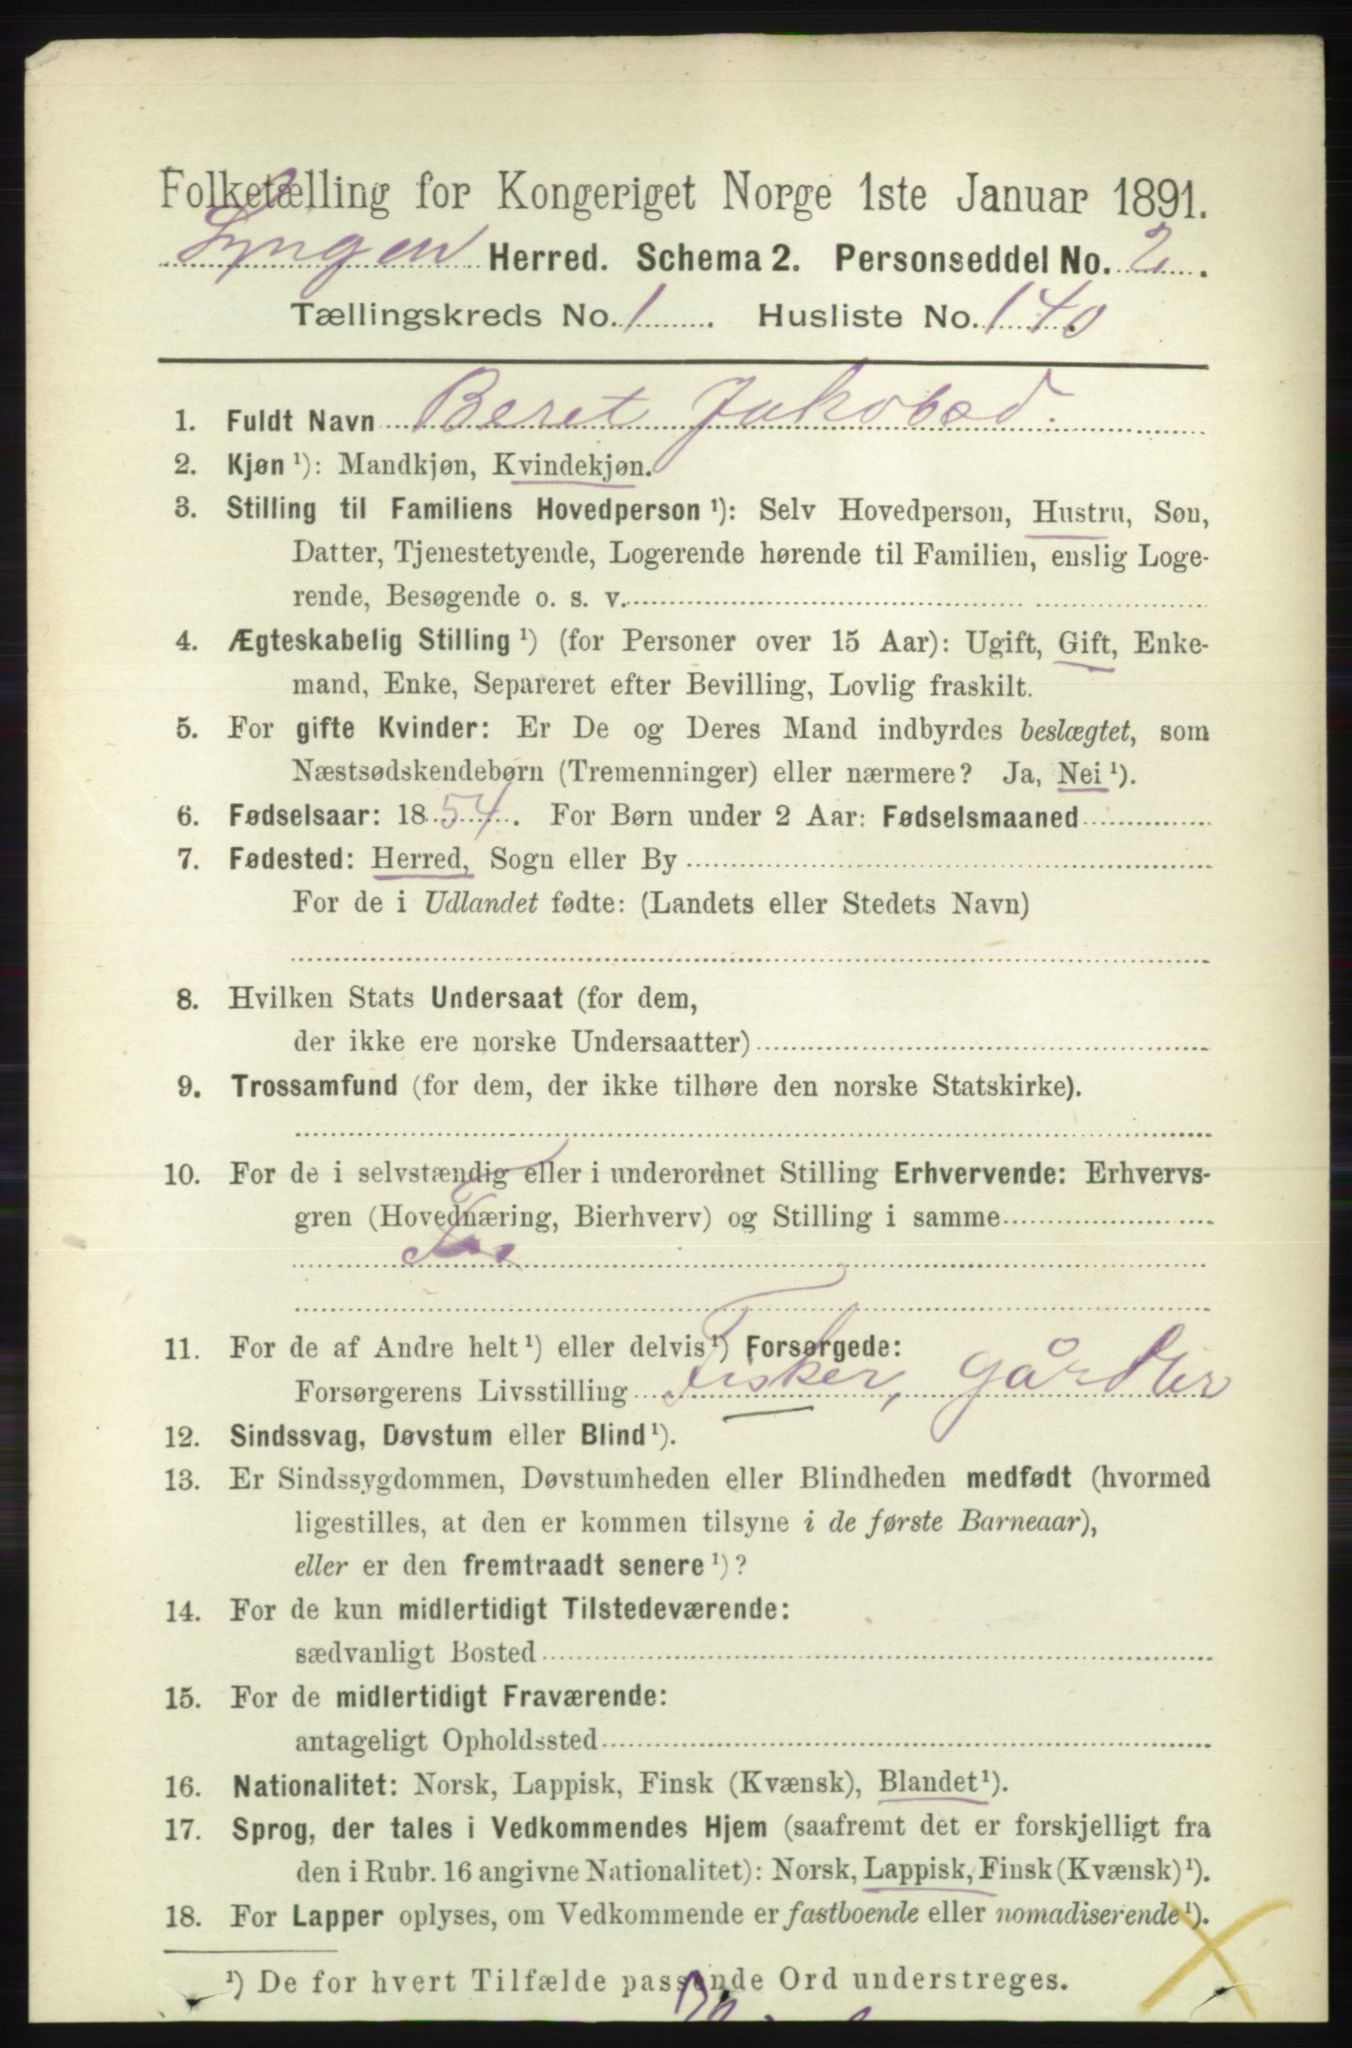 Folketælling for Kongeriget Norge 1ste Januar 1891.
Lyngen Herred. Schema 2. Personseddel No. 2.
Tællingskreds No. 1. Husliste No. 140
1. Fuldt Navn Beret Jakobsd.
2. Kjøn ¹): Mandkjøn, Kvindekjøn.
3. Stilling til Familiens Hovedperson ¹): Selv Hovedperson, Hustru, Søn,
Datter, Tjenestetyende, Logerende hørende til Familien, enslig Loge-
rende, Besøgende o. s. v.
4. Ægteskabelig Stilling ¹) (for Personer over 15 Aar): Ugift, Gift, Enke-
mand, Enke, Separeret efter Bevilling, Lovlig fraskilt.
5. For gifte Kvinder: Er De og Deres Mand indbyrdes beslægtet, som
Næstsødskendebørn (Tremenninger) eller nærmere? Ja, Nei ¹).
6. Fødselsaar: 1854. For Børn under 2 Aar: Fødselsmaaned
7. Fødested: Herred, Sogn eller By
For de i Udlandet fødte: (Landets eller Stedets Navn)
8. Hvilken Stats Undersaat (for dem,
der ikke ere norske Undersaatter)
9. Trossamfund (for dem, der ikke tilhøre den norske Statskirke).
10. For de i selvstændig eller i underordnet Stilling Erhvervende: Erhvervs-
gren (Hovednæring, Bierhverv) og Stilling i samme
11. For de af Andre helt ¹) eller delvis ¹) Forsørgede:
Forsørgerens Livsstilling Fisker, gårdbr
12. Sindssvag, Døvstum eller Blind ¹).
13. Er Sindssygdommen, Døvstumheden eller Blindheden medfødt (hvormed
ligestilles, at den er kommen tilsyne i de første Barneaar),
eller er den fremtraadt senere ¹)?
14. For de kun midlertidigt Tilstedeværende:
sædvanligt Bosted
15. For de midlertidigt Fraværende:
antageligt Opholdssted
16. Nationalitet: Norsk, Lappisk, Finsk (Kvænsk), Blandet ¹).
17. Sprog, der tales i Vedkommendes Hjem (saafremt det er forskjelligt fra
den i Rubr. 16 angivne Nationalitet): Norsk, Lappisk, Finsk (Kvænsk) ¹).
18. For Lapper oplyses, om Vedkommende er fastboende eller nomadiserende ¹).
¹) De for hvert Tilfælde passende Ord understreges.